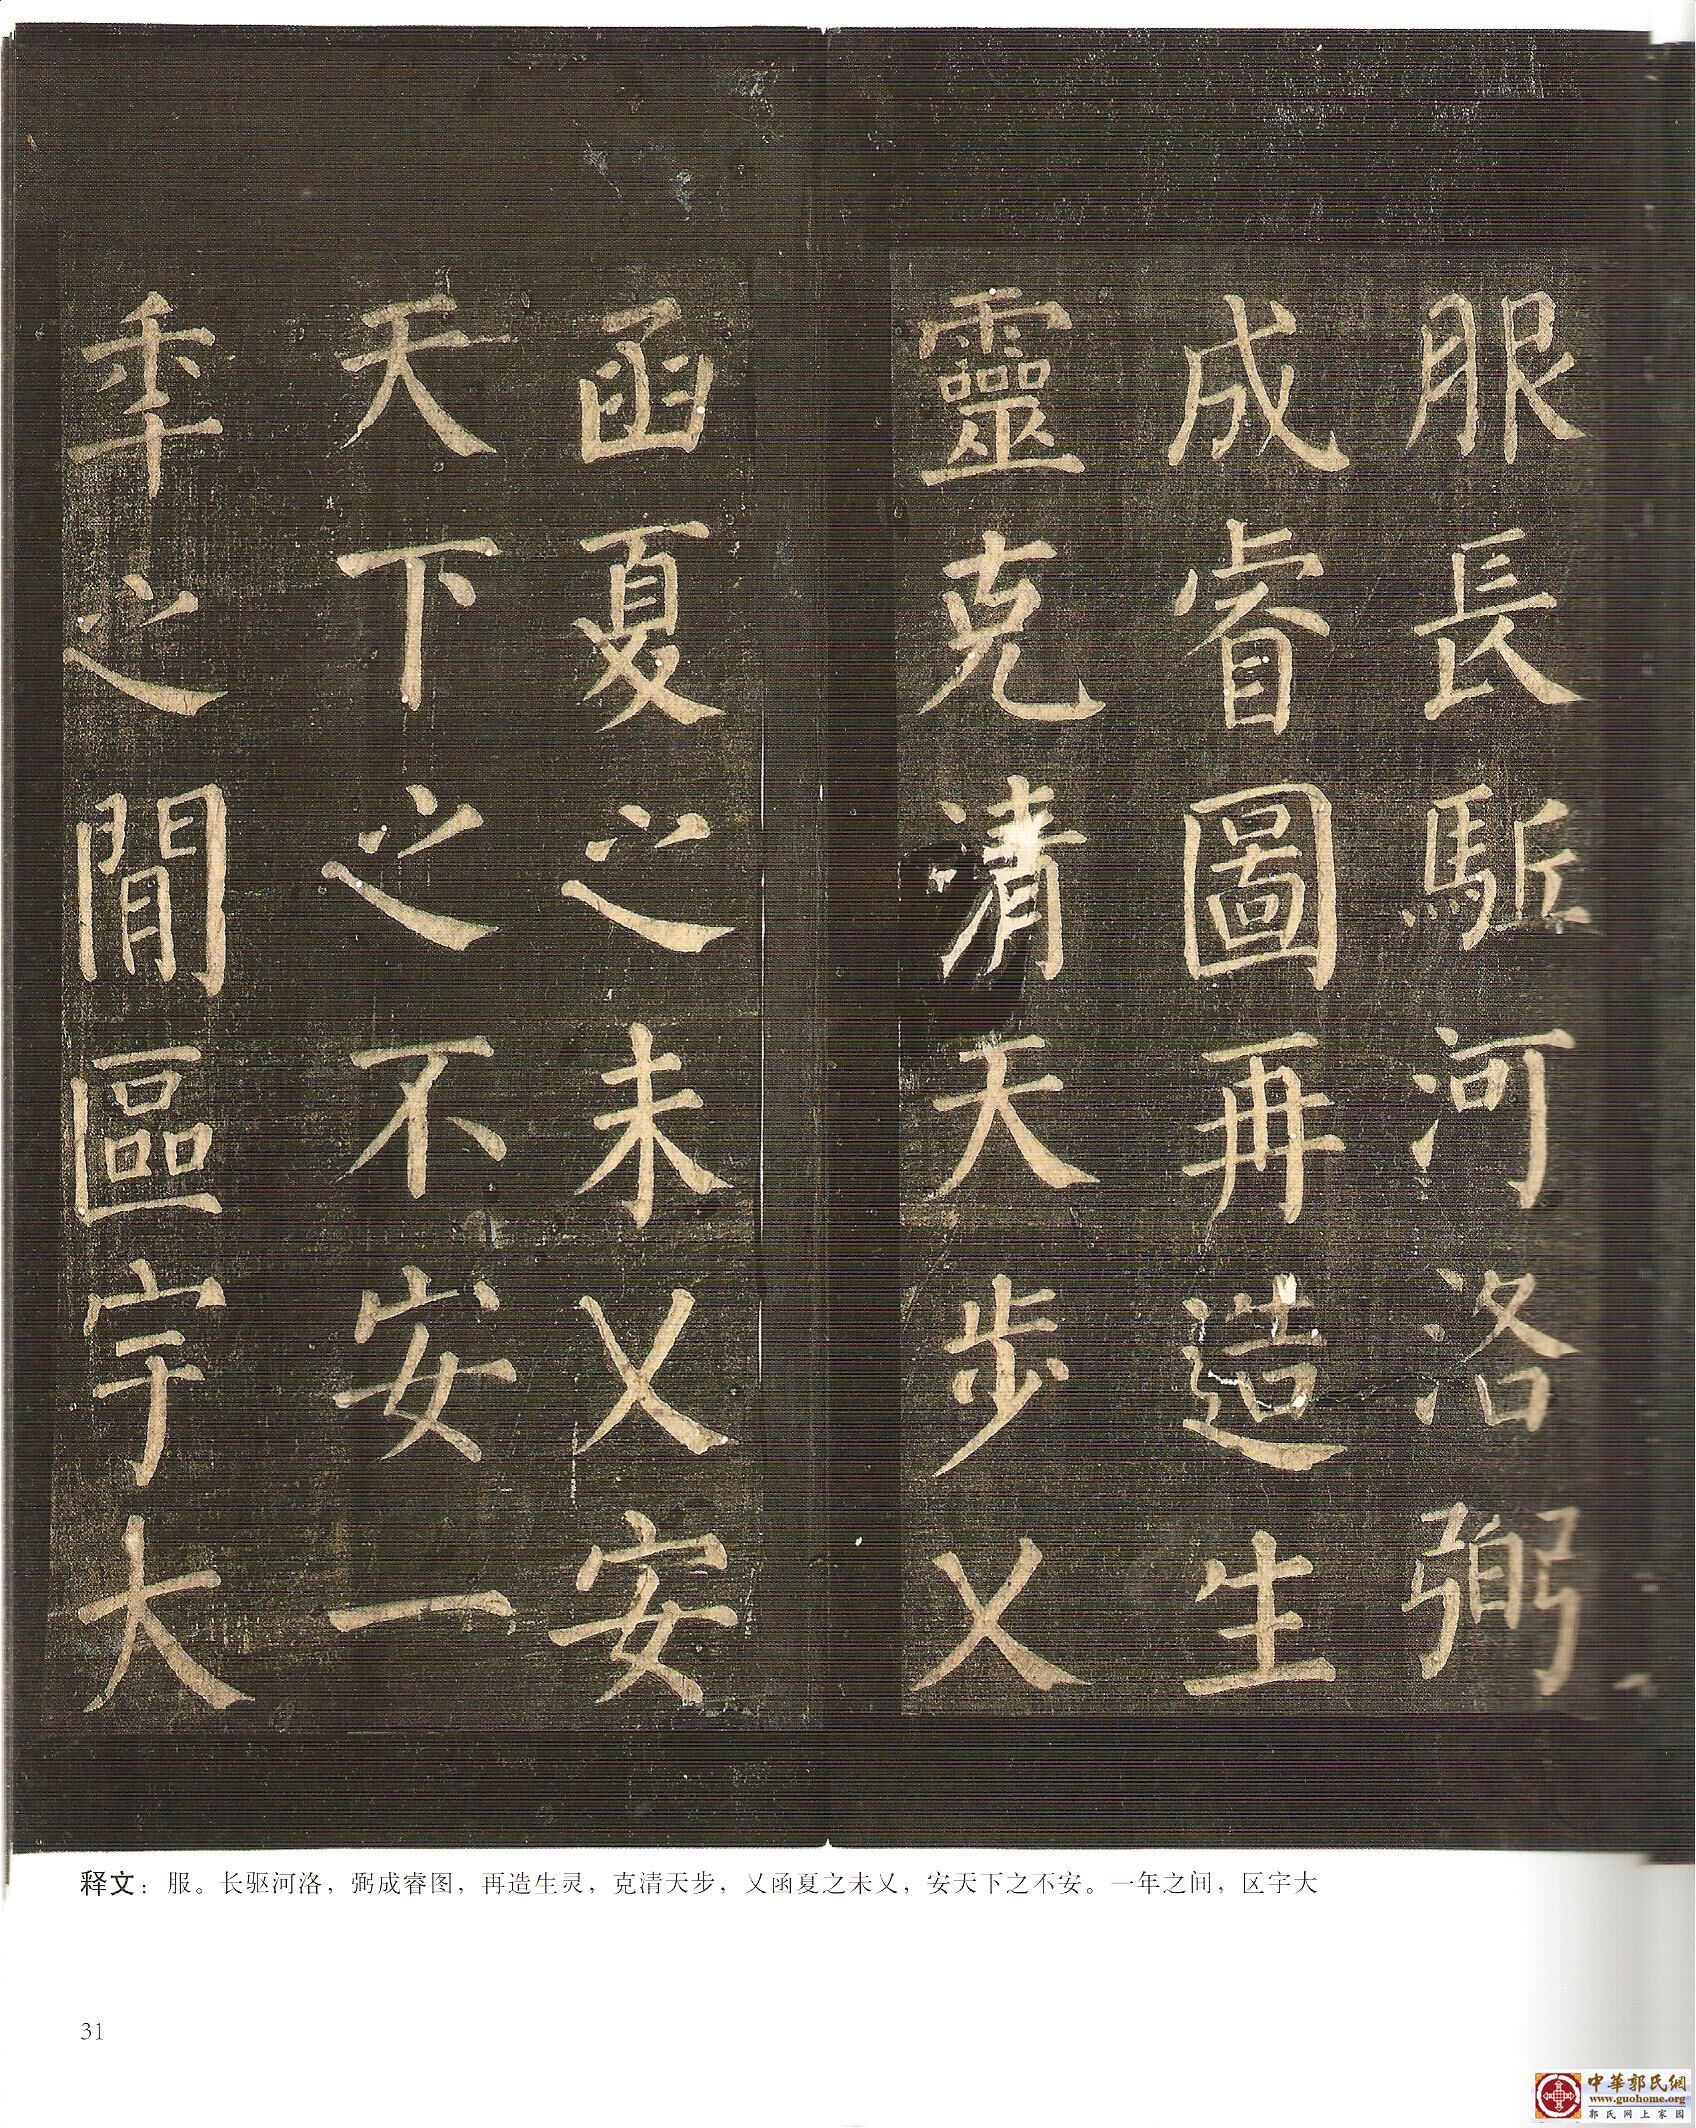 服長駈河洛弼
成睿圖再造生
靈克清天步乂
函夏之未乂安
天下之不安一
年之間區宇大
释文：服。长驱河洛，弼成睿图，再造生灵，克清天步，乂函夏之未乂，安天下之不安。一年之间，区宇大
31
中華郭氏網
www.guohome.org
郭氏网上家园